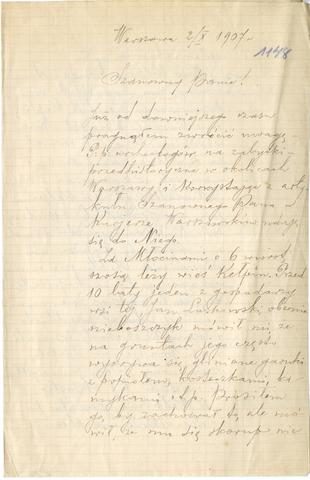 Warszawa 2/X 1907 r.
1148
Szanowny Panie!
Już od dawniejszego czasu
pragnąłem zwrócić uwagę
P.P. archeologów na zabytki
przedhistoryczne w okolicach
Warszawy i korzystając z arty
kułu Szanownego Pana w
Kurjerze Warszawskim udaję
się do Niego.
Za Młocinami o 6 wiorst
szosą leży wieś Kelpin. Przed
10 laty jeden z gospodarzy
wsi tej Jan obecnie
nieboszczyk mówił mi, że
na gruntach jego często
wyorywa się gliniane garnki
z popiołem, kosteczkami, ka
mykami i t.p. Prosiłem
go by zachował je, ale mó
wił, że mu się skorup nie